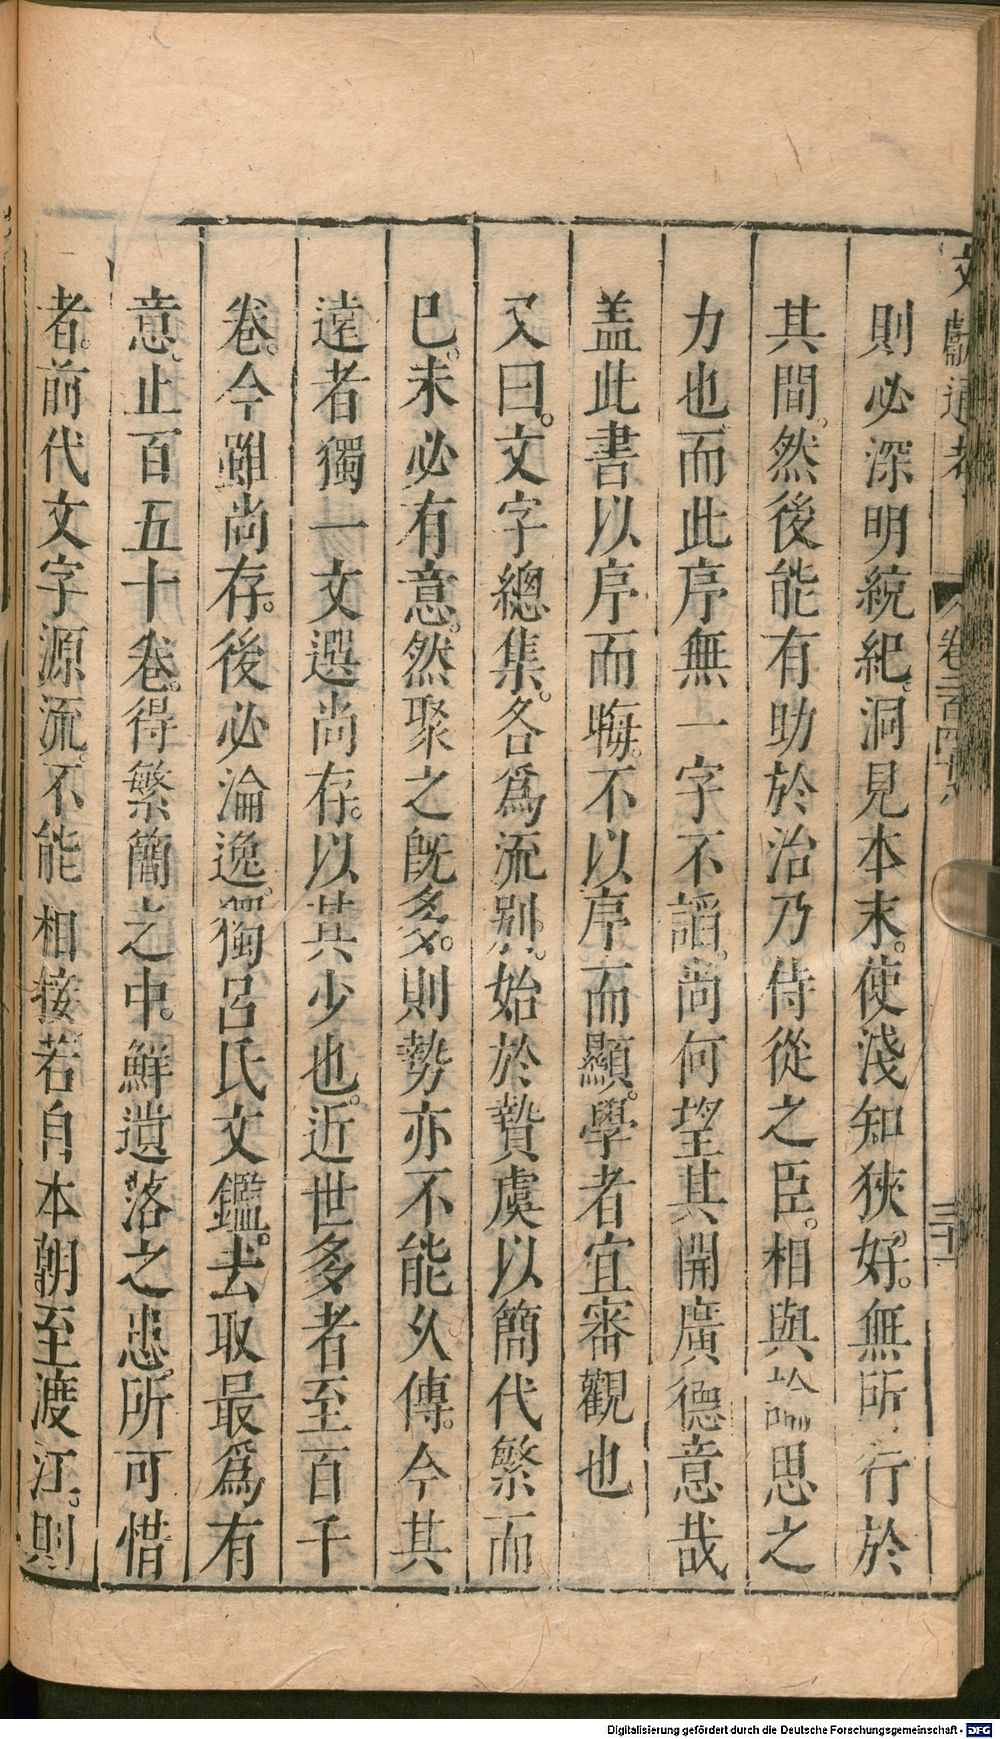 文獻通考
卷二百四十八
三十一
則必深明統紀洞見本末使淺知狹好無所行於
其間然後能有助於治乃侍從之臣相與論思之
力也而此序無一字不謟尚何望其開廣德意哉
盖此書以序而晦不以序而顯學者宜審觀也
又曰文字總集各爲流别始於贄虞以簡代繁而
已未必有意然聚之旣多則勢亦不能久傳今其
遠者獨一文選尚存以其少也近世多者至百千
卷今雖尚存後必淪逸獨呂氏文鑑去取最爲有
意止百五十卷得繁簡之中鮮遺落之患所可惜
者前代文字源流不能相接若自本朝至渡江則
Digitalisierung gefördert durch die Deutsche Forschungsgemeinschaft - DFG